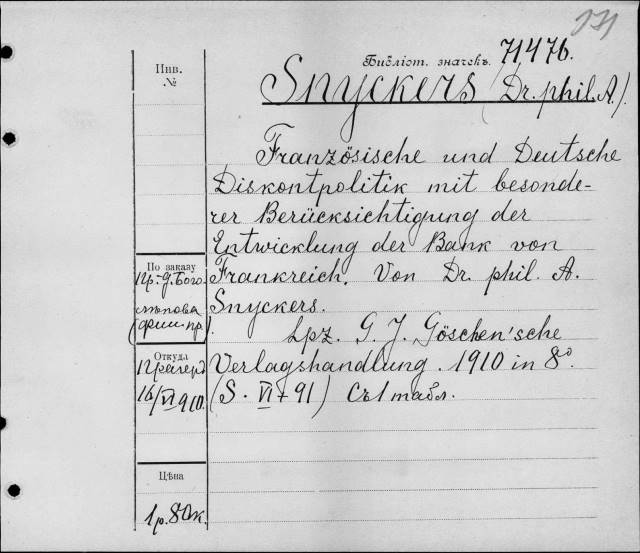 171
Библіот. значекъ. 71476.
Инв.
№
Snyckers (Dr. phil. A.).
Französische und Deutsche
Diskontpolitik mit besonde-
rer Berücksichtigung der
Entwicklung der Bank von
Frankreich. Von Dr. phil. A.
Snyckers.
Lpz. G. J. Göschen'sche
Verlagshandlung. 1910 in 8º
(S. VI + 91) Съ 1 табл.
По заказу
Пр.-д. Бого-
лѣпова
(фин. пр.)
Откуда
Прагеръ
16/VI 910.
Цѣна
1 р. 80 к.